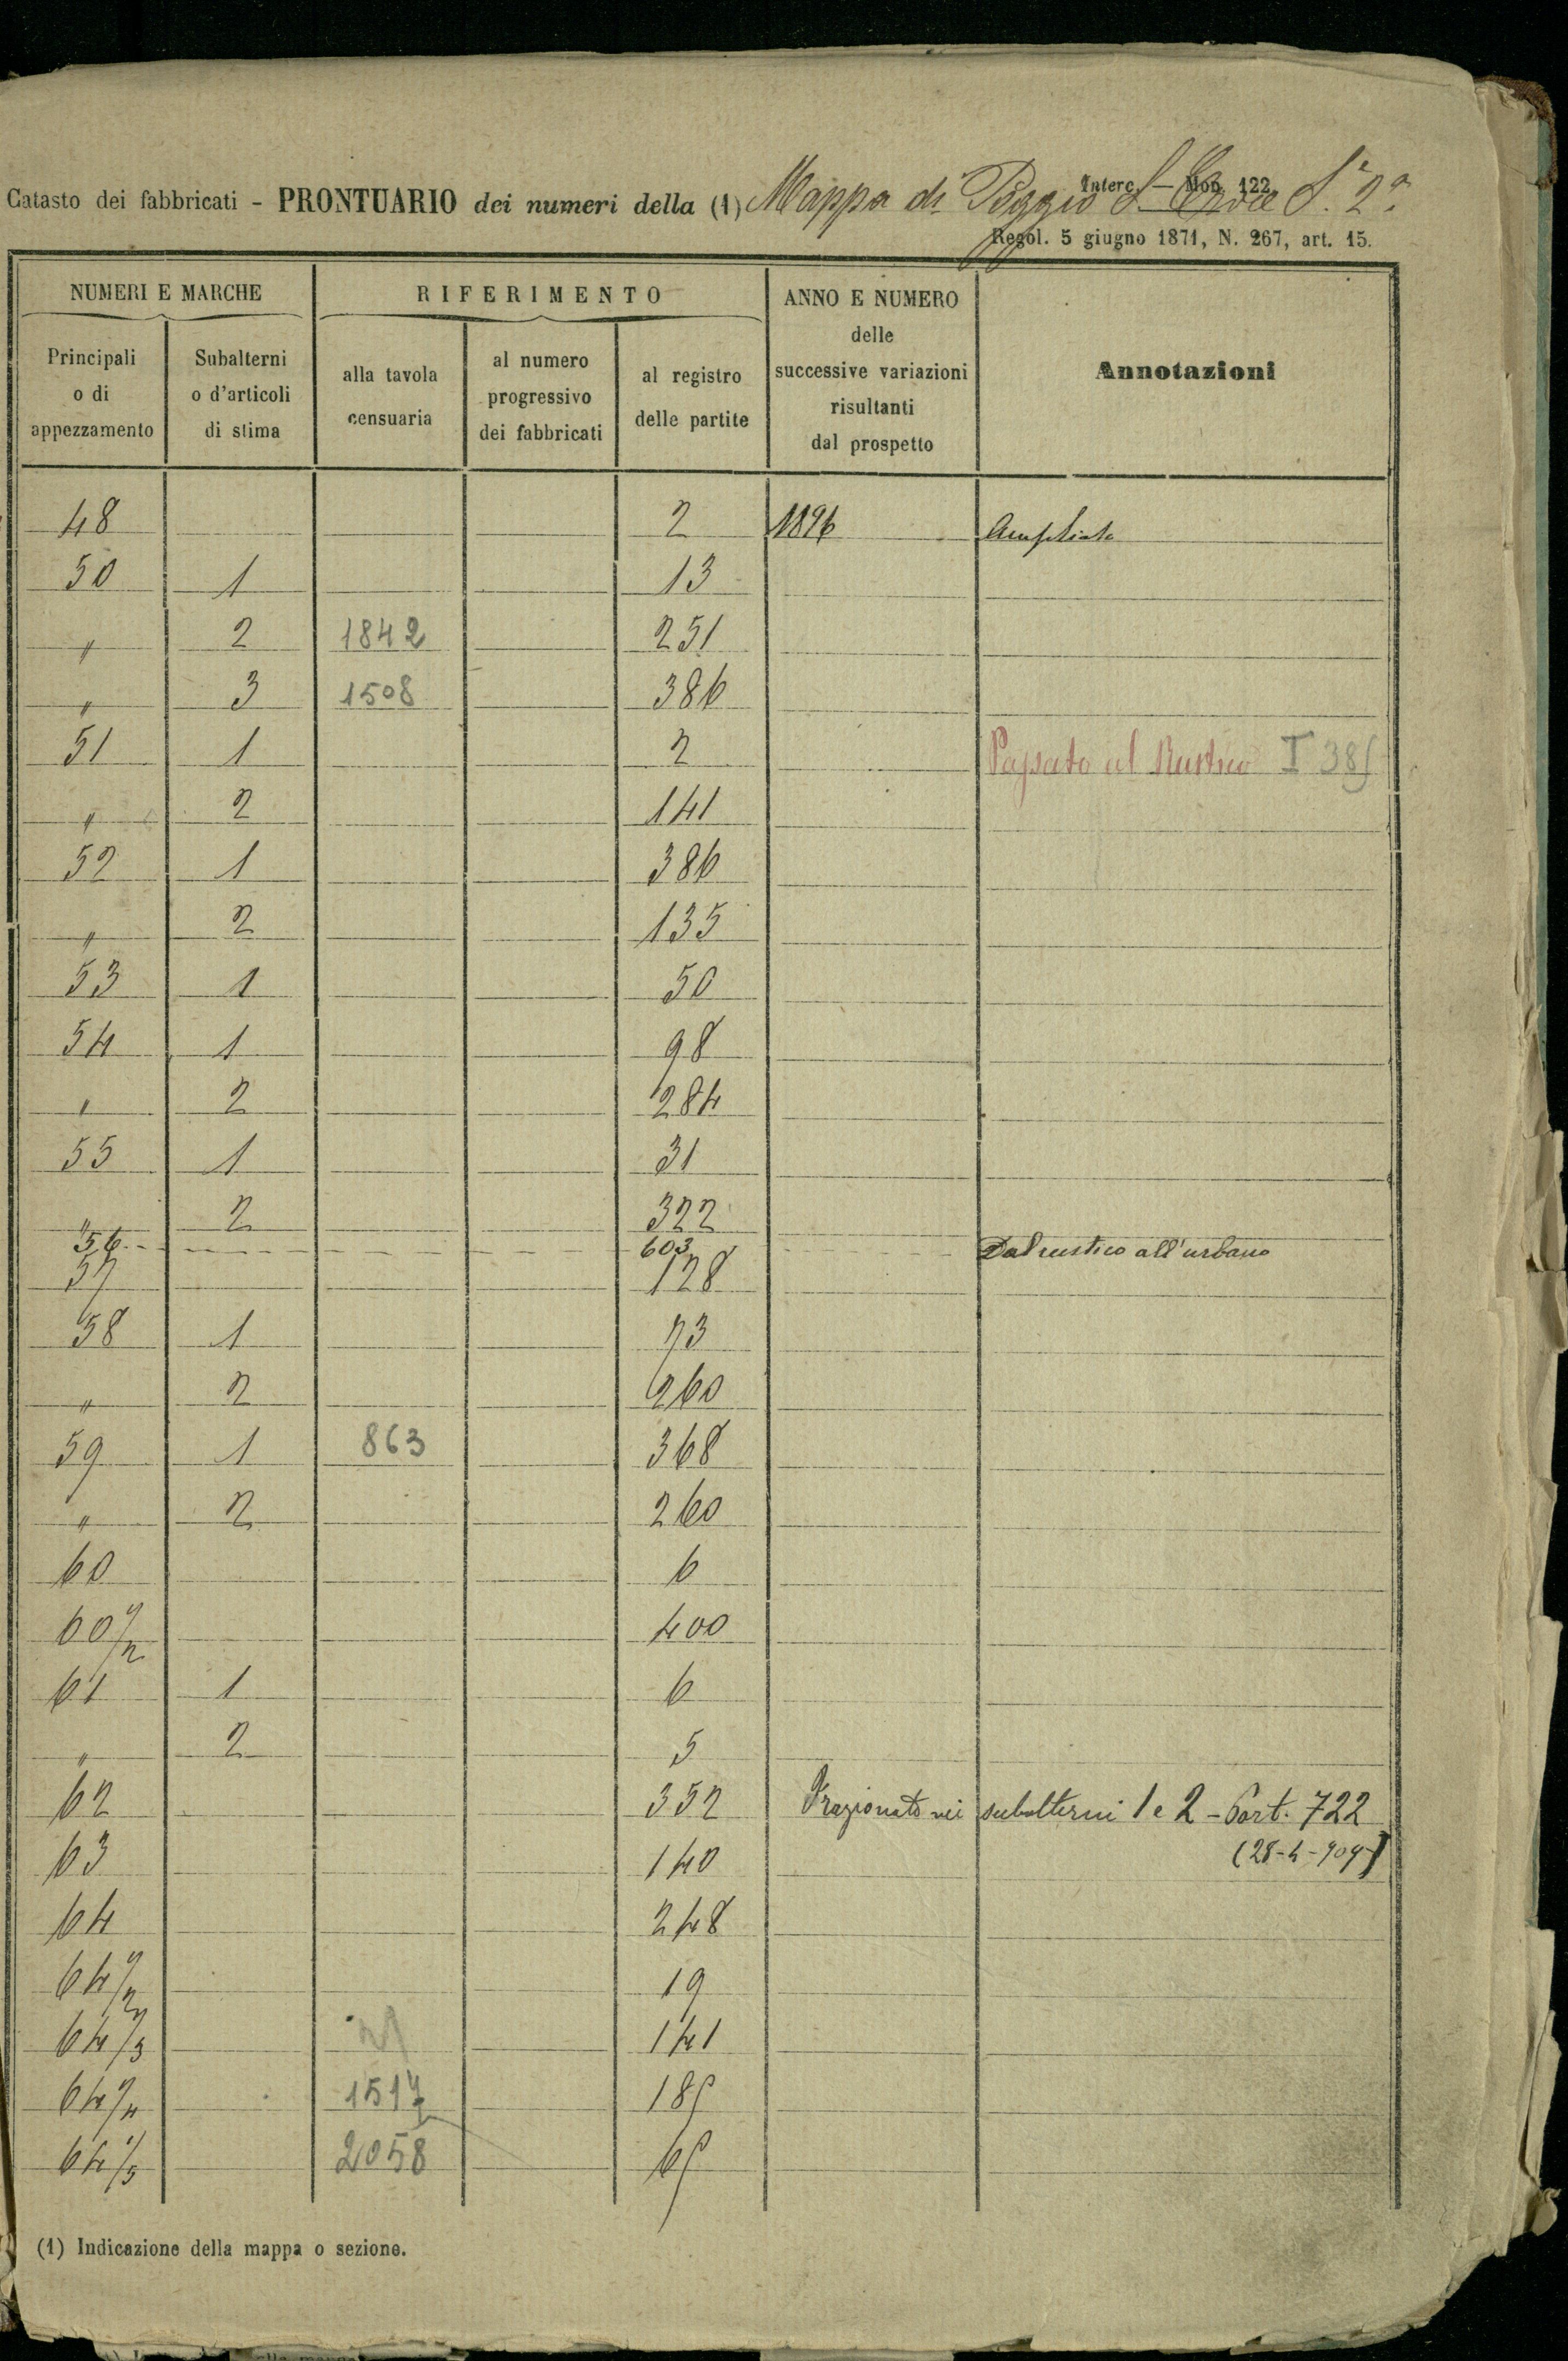 Interc. — Mod. 122
Catasto dei fabbricati - PRONTUARIO dei numeri della (1) Mappa di Poggio S. Croce S. 2ª
Regol. 5 giugno 1871, N. 267, art. 15.
NUMERI E MARCHE
RIFERIMENTO
ANNO E NUMERO
delle
successive variazioni
risultanti
dal prospetto
Annotazioni
Principali
o di
appezzamento
Subalterni
o d'articoli
di stima
alla tavola
censuaria
al numero
progressivo
dei fabbricati
al registro
delle partite
48 2 1896 Ampliato
50 1 13
" 2 1842 251
" 3 1508 386
51 1 2 Passato al Rustico I 385
" 2 141
52 1 386
" 2 135
53 1 50
54 1 98
" 2 284
55 1 31
" 2 322
56 603 Dal rustico all'urbano
57 128
58 1 73
" 2 260
59 1 863 368
" 2 260
60 6
60/2 400
61 1 6
" 2 5
62 352 Frazionato nei subalterni 1 e 2 - Part. 722
(28-4-909)
63 140
64 248
64/2 19
64/3 141
64/4 1517 185
64/5 2058 65
(1) Indicazione della mappa o sezione.